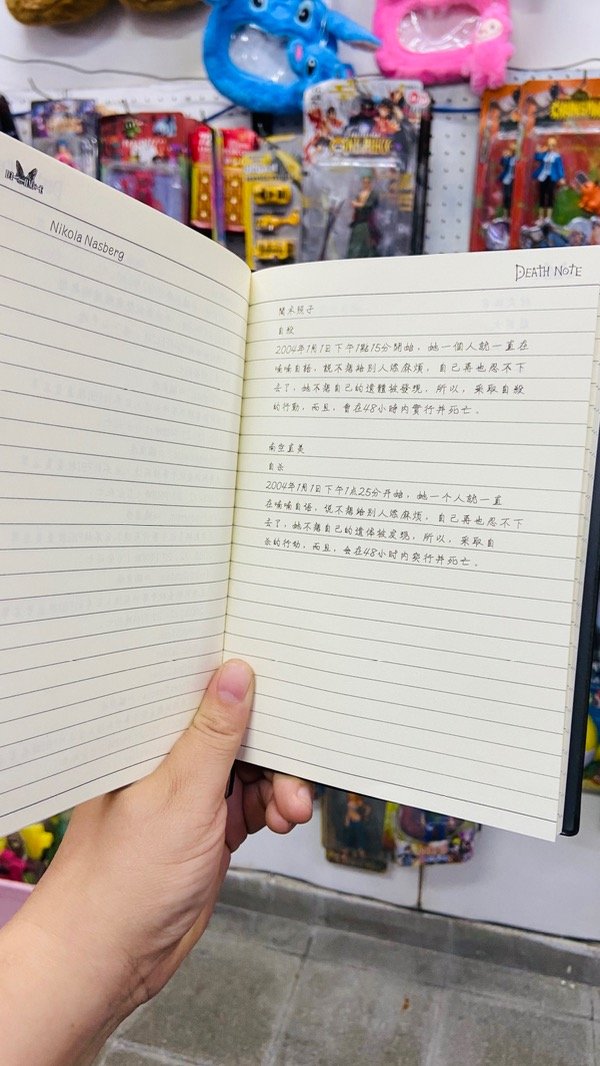 Nikola Nasberg
DEATH NOTE
間木照子
自殺
2004年1月1日下午1點15分開始，她一個人就一直在
喃喃自語，說不想給別人添麻煩，自己再也忍不下
去了，她不想自己的遺體被發現，所以，采取自殺
的行動，而且，會在48小時內實行并死亡。
南空直美
自杀
2004年1月1日下午1点25分开始，她一个人就一直
在喃喃自语，说不想给别人添麻烦，自己再也忍不下
去了，她不想自己的遗体被发现，所以，采取自
杀的行动，而且，会在48小时内实行并死亡。